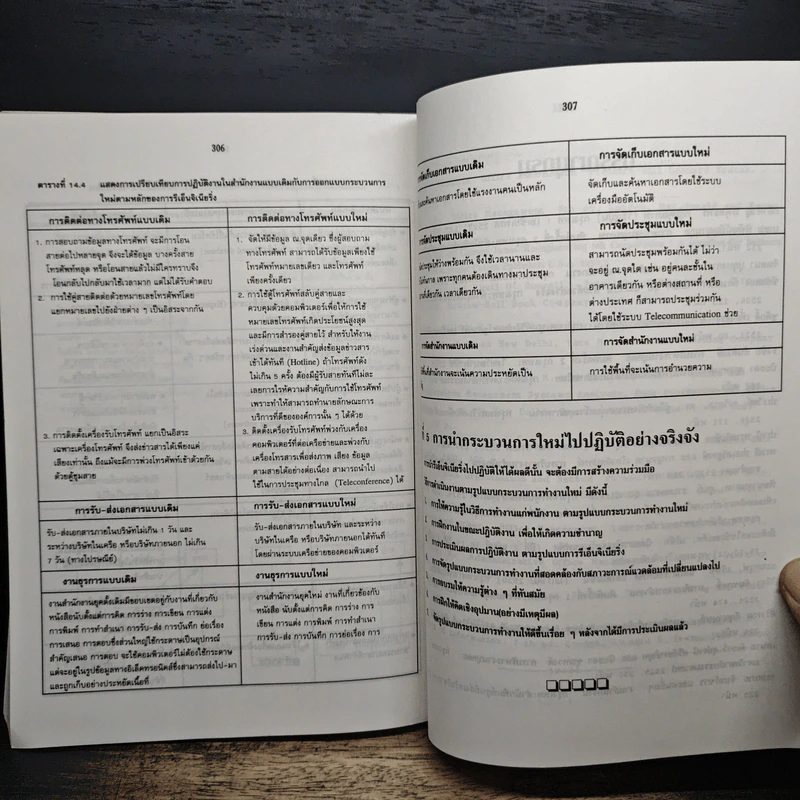 306
ตารางที่ 14.4 แสดงการเปรียบเทียบการปฏิบัติงานในสำนักงานแบบเดิมกับการออกแบบกระบวนการ
ใหม่ตามหลักของการรีเอ็นจิเนียริ่ง
การติดต่อทางโทรศัพท์แบบเดิม
1. การสอบถามข้อมูลทางโทรศัพท์ จะมีการโอน
สายต่อไปหลายจุด จึงจะได้ข้อมูล บางครั้งสาย
โทรศัพท์หลุด หรือโอนสายแล้วไม่มีใครทราบจึง
โอนกลับไปกลับมาใช้เวลามาก แต่ไม่ได้รับคำตอบ
2. การใช้คู่สายติดต่อด้วยหมายเลขโทรศัพท์โดย
แยกหมายเลขไปยังฝ่ายต่าง ๆ เป็นอิสระจากกัน
3. การติดตั้งเครื่องรับโทรศัพท์ แยกเป็นอิสระ
เฉพาะเครื่องโทรศัพท์ จึงส่งข่าวสารได้เพียงแค่
เสียงเท่านั้น ถึงแม้จะมีการพ่วงโทรศัพท์เข้าด้วยกัน
ด้วยตู้ชุมสาย
การติดต่อทางโทรศัพท์แบบใหม่
1. จัดให้มีข้อมูล ณ.จุดเดียว ซึ่งผู้สอบถาม
ทางโทรศัพท์ สามารถได้รับข้อมูลเพียงใช้
โทรศัพท์หมายเลขเดียว และโทรศัพท์
เพียงครั้งเดียว
2. การใช้ตู้โทรศัพท์สลับคู่สายและ
ควบคุมด้วยคอมพิวเตอร์เพื่อให้การใช้
หมายเลขโทรศัพท์เกิดประโยชน์สูงสุด
และมีการสำรองคู่สายไว้ สำหรับให้งาน
เร่งด่วนและงานสำคัญส่งข้อมูลข่าวสาร
เข้าได้ทันที (Hotline) ถ้าโทรศัพท์ดัง
ไม่เกิน 5 ครั้ง ต้องมีผู้รับสายทันทีไม่ละ
เลยการให้ความสำคัญกับการใช้โทรศัพท์
เพราะทำให้สามารถทำนายลักษณะการ
บริการที่ดีขององค์การนั้น ๆ ได้ด้วย
3. ติดตั้งเครื่องรับโทรศัพท์พ่วงกับเครื่อง
คอมพิวเตอร์ที่ต่อเครือข่ายและพ่วงกับ
เครื่องโทรสารเพื่อส่งภาพ เสียง ข้อมูล
ตามสายได้อย่างต่อเนื่อง สามารถนำไป
ใช้ในการประชุมทางไกล (Teleconference) ได้
การรับ-ส่งเอกสารแบบเดิม
รับ-ส่งเอกสารภายในบริษัทไม่เกิน 1 วัน และ
ระหว่างบริษัทในเครือ หรือบริษัทภายนอก ไม่เกิน
7 วัน (ทางไปรษณีย์)
การรับ-ส่งเอกสารแบบใหม่
รับ-ส่งเอกสารภายในบริษัท และระหว่าง
บริษัทในเครือ หรือบริษัทภายนอกได้ทันที
โดยผ่านระบบเครือข่ายของคอมพิวเตอร์
งานธุรการแบบเดิม
งานสำนักงานยุคดั้งเดิมมีขอบเขตอยู่กับงานที่เกี่ยวกับ
หนังสือ นับตั้งแต่การคิด การร่าง การเขียน การแต่ง
การพิมพ์ การทำสำเนา การรับ-ส่ง การบันทึก ย่อเรื่อง
การเสนอ การตอบซึ่งส่วนใหญ่ใช้กระดาษเป็นอุปกรณ์
สำคัญเสนอ การตอบ จะใช้คอมพิวเตอร์ไม่ต้องใช้กระดาษ
แต่จะอยู่ในรูปข้อมูลทางอิเล็คทรอนิคส์ซึ่งสามารถส่งไป-มา
และถูกเก็บอย่างประหยัดเนื้อที่
งานธุรการแบบใหม่
งานสำนักงานยุคใหม่ งานที่เกี่ยวข้องกับ
หนังสือ นับตั้งแต่การคิด การร่าง การ
เขียน การแต่ง การพิมพ์ การทำสำเนา
การรับ-ส่ง การบันทึก การย่อเรื่อง การ
307
การจัดเก็บเอกสารแบบเดิม
และค้นหาเอกสารโดยใช้แรงงานคนเป็นหลัก
การจัดเก็บเอกสารแบบใหม่
จัดเก็บและค้นหาเอกสารโดยใช้ระบบ
เครื่องมืออัตโนมัติ
การจัดประชุมแบบเดิม
ประชุมให้ว่างพร้อมกัน จึงใช้เวลานานและ
เพราะทุกคนต้องเดินทางมาประชุม
เดียวกัน เวลาเดียวกัน
การจัดประชุมแบบใหม่
สามารถนัดประชุมพร้อมกันได้ ไม่ว่า
จะอยู่ ณ.จุดใด เช่น อยู่คนละชั้นใน
อาคารเดียวกัน หรือต่างสถานที่ หรือ
ต่างประเทศ ก็สามารถประชุมร่วมกัน
ได้โดยใช้ระบบ Telecommunication ช่วย
การจัดสำนักงานแบบเดิม
สำนักงานจะเน้นความประหยัดเป็น
การจัดสำนักงานแบบใหม่
การใช้พื้นที่จะเน้นการอำนวยความ
ที่ 5 การนำกระบวนการใหม่ไปปฏิบัติอย่างจริงจัง
ไปปฏิบัติให้ได้ผลดีนั้น จะต้องมีการสร้างความร่วมมือ
ดำเนินงานตามรูปแบบกระบวนการทำงานใหม่ มีดังนี้
การให้ความรู้ในวิธีการทำงานแก่พนักงาน ตามรูปแบบกระบวนการทำงานใหม่
การฝึกงานในขณะปฏิบัติงาน เพื่อให้เกิดความชำนาญ
การประเมินผลการปฏิบัติงาน ตามรูปแบบการรีเอ็นจิเนียริ่ง
การจัดรูปแบบกระบวนการทำงานที่สอดคล้องกับสภาวะการณ์แวดล้อมที่เปลี่ยนแปลงไป
การอบรมให้ความรู้ต่าง ๆ ที่ทันสมัย
การฝึกให้คิดเชิงอุปมาน(อย่างมีเหตุมีผล)
จัดรูปแบบกระบวนการทำงานให้ดีขึ้นเรื่อย ๆ หลังจากได้มีการประเมินผลแล้ว